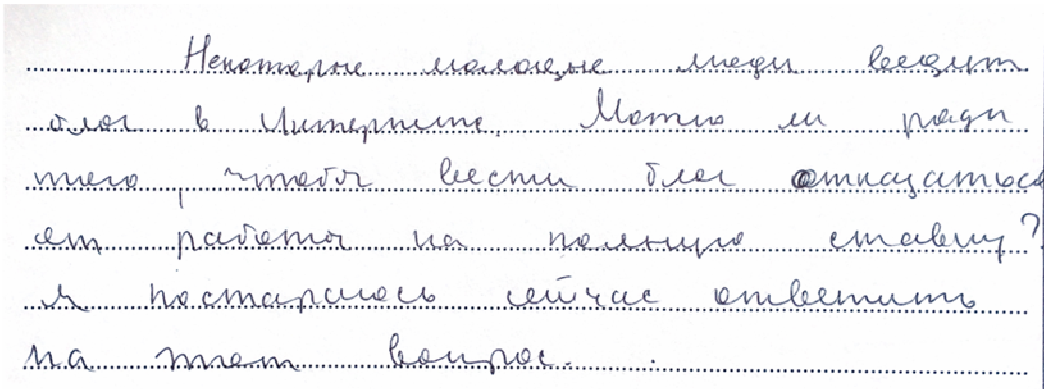 Некоторые молодые люди ведут
блог в Интернете. Можно ли ради
того, чтобы вести блог отказаться
от работы на полную ставку?
Я постараюсь сейчас ответить
на этот вопрос.